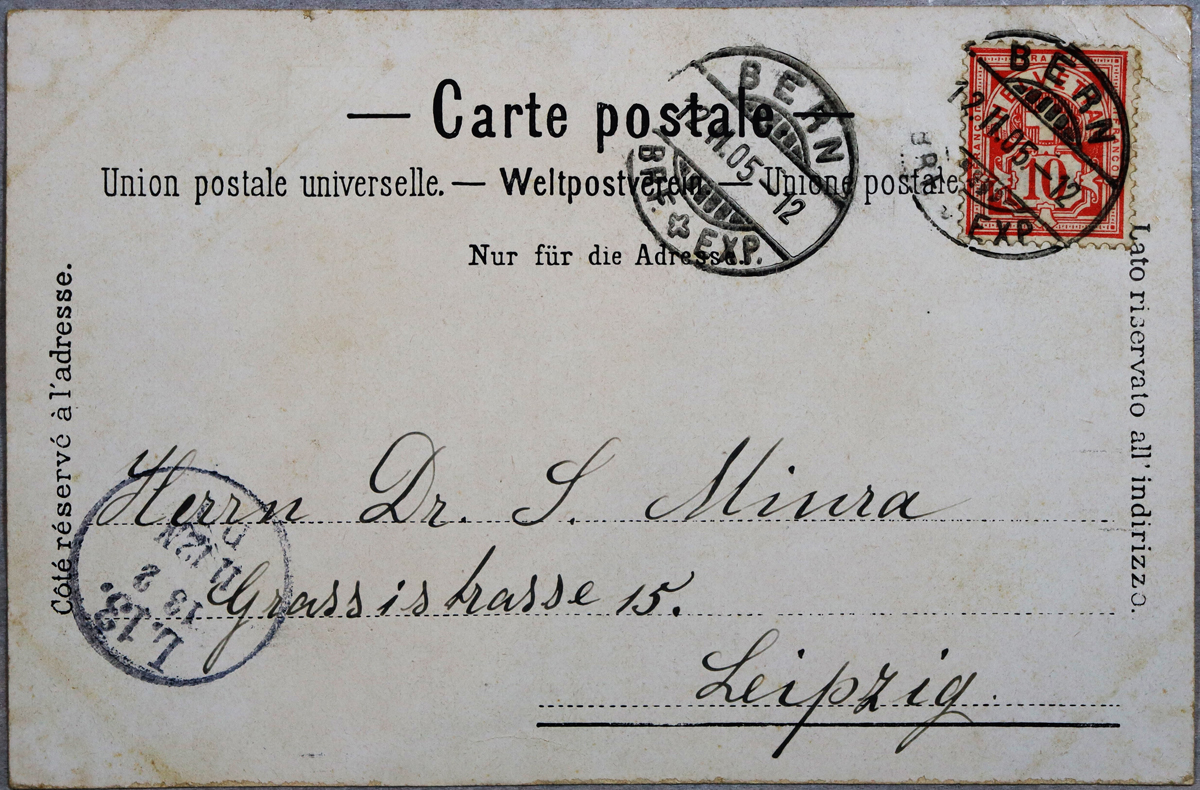 — Carte postale —
Union postale universelle. — Weltpostverein — Unione postale
Nur für die Adresse.
Côté réservé à l'adresse.
Lato riservato all' indirizzo.
BERN
12.11.05 – 12
BRF. EXP.
BERN
12.11.05 – 12
EXP.
10
Herrn Dr. S. Miura
Grassistrasse 15.
Leipzig.
L.13.